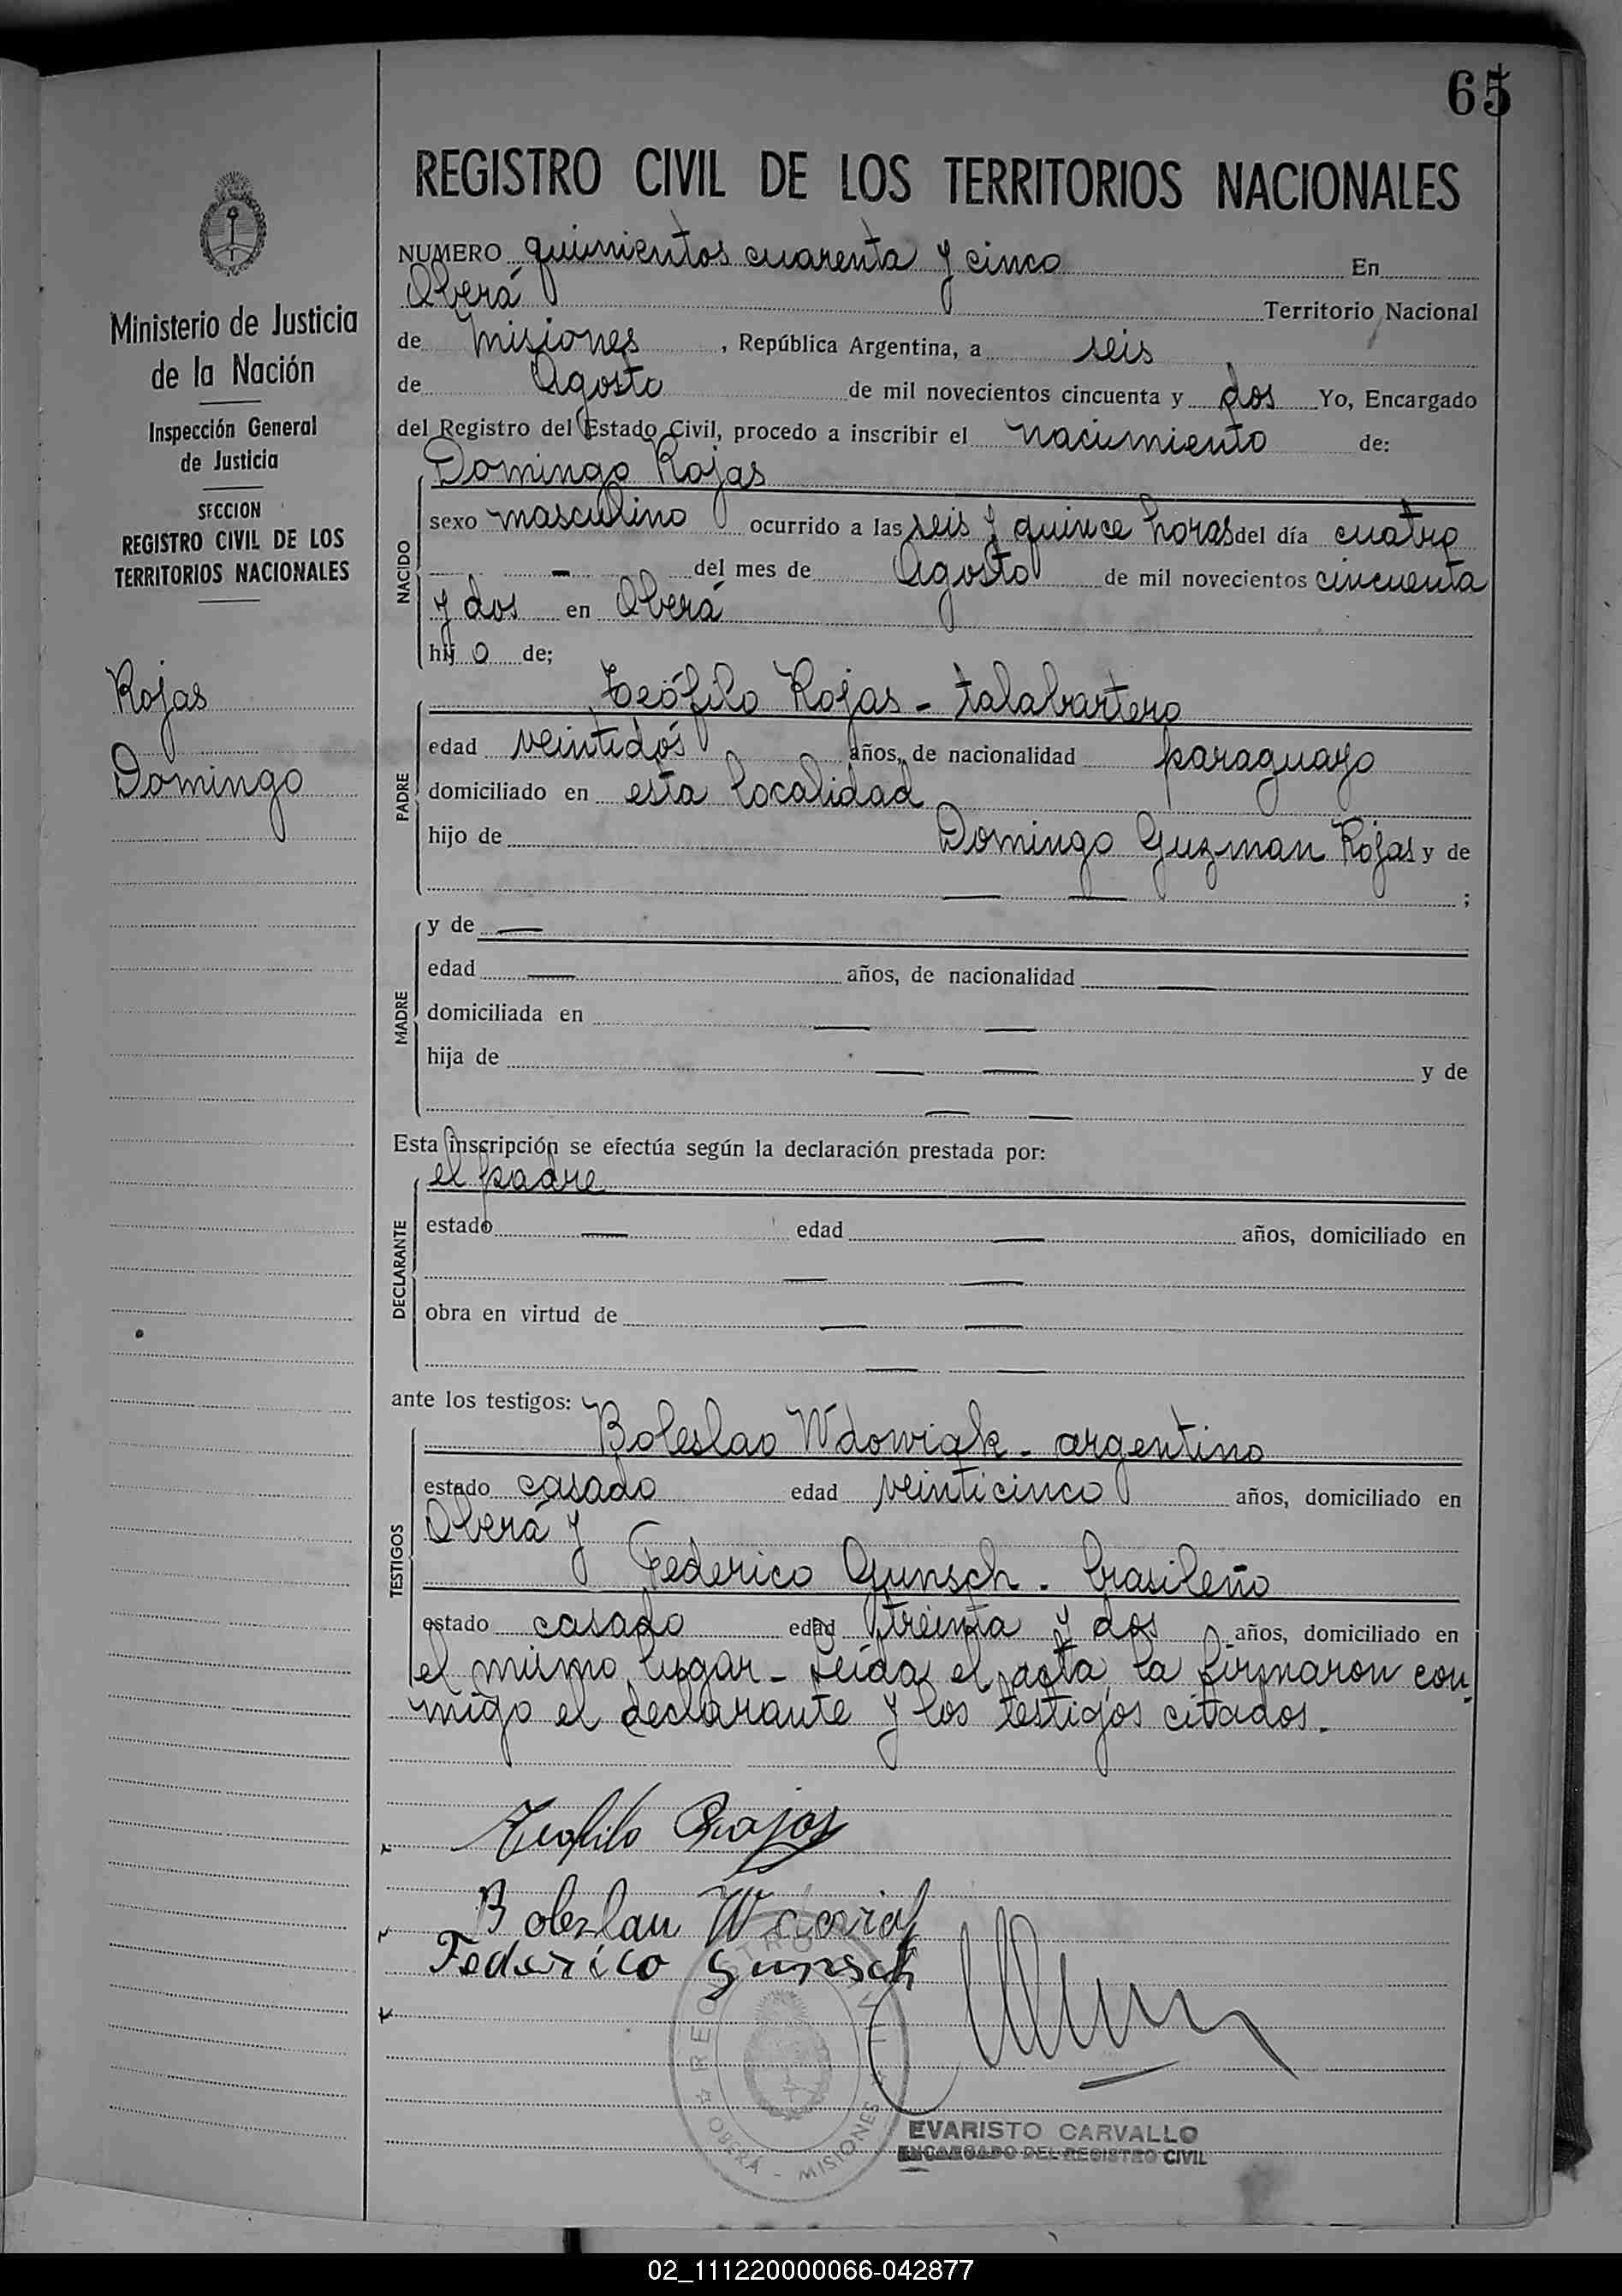 65
REGISTRO CIVIL DE LOS TERRITORIOS NACIONALES
NUMERO quinientos cuarenta y cinco En
Oberá Territorio Nacional
de Misiones, República Argentina, a seis
de Agosto de mil novecientos cincuenta y dos Yo, Encargado
del Registro del Estado Civil, procedo a inscribir el nacimiento de:
Domingo Rojas
NACIDO
sexo masculino ocurrido a las seis y quince horas del día cuatro
- del mes de Agosto de mil novecientos cincuenta
y dos en Oberá
hijo de;
Teófilo Rojas - talabartero
PADRE
edad veintidós años, de nacionalidad paraguayo
domiciliado en esta localidad
hijo de Domingo Guzman Rojas y de
— — ;
MADRE
y de —
edad — años, de nacionalidad —
domiciliada en — —
hija de — — y de
— —
Esta inscripción se efectúa según la declaración prestada por:
el padre
DECLARANTE
estado — edad — años, domiciliado en
— —
obra en virtud de — —
— —
ante los testigos:
Boleslao Wdowiak - argentino
TESTIGOS
estado casado edad veinticinco años, domiciliado en
Oberá y
Federico Gunsch - brasileño
estado casado edad treinta y dos años, domiciliado en
el mismo lugar - Leída el acta, la firmaron con-
migo el declarante y los testigos citados.
Teofilo Rojas
Boleslau
Federico Gunsch
REGISTRO CIVIL
OBERÁ - MISIONES
EVARISTO CARVALLO
ENCARGADO DEL REGISTRO CIVIL
Ministerio de Justicia
de la Nación
Inspección General
de Justicia
SECCION
REGISTRO CIVIL DE LOS
TERRITORIOS NACIONALES
Rojas
Domingo
02_111220000066-042877